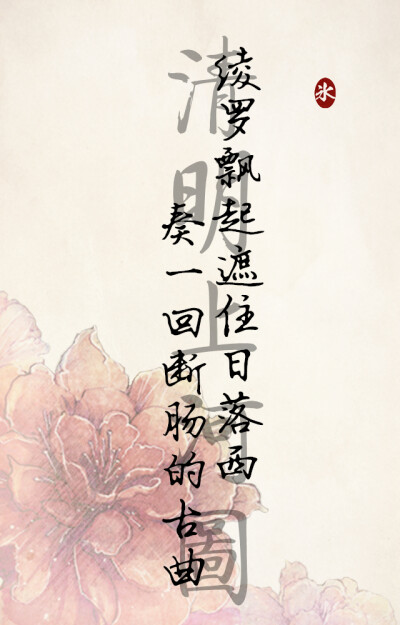 氷
绫罗飘起遮住日落西
奏一回断肠的古曲
清明上河圖